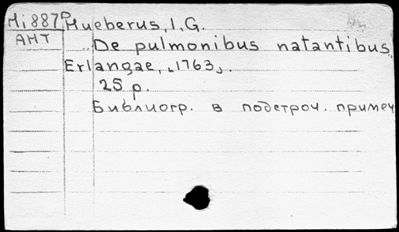 Mi887p Hueberus, I, G.
AMT ..De pulmonibus natantibus.
Erlangae, ⌞1763⌟.
25 p.
Библиогр. в подстроч. примеч